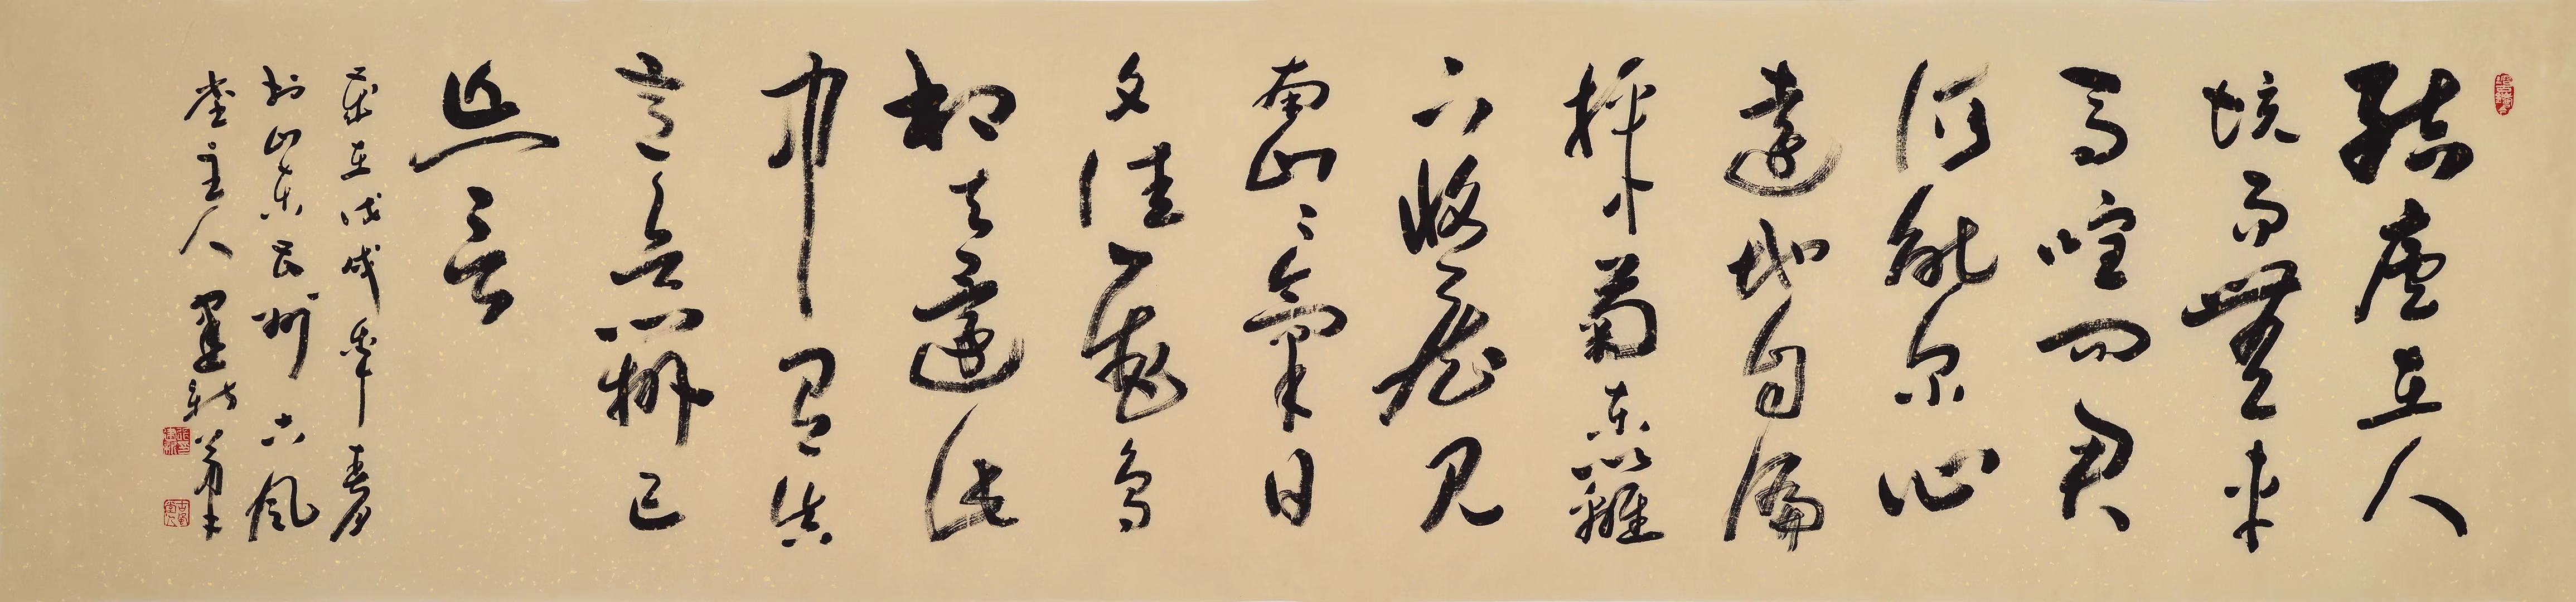 結廬在人
境而無車
馬喧問君
何能尔心
遠地自偏
採菊東籬
下悠然見
南山〻氣日
夕佳飛鳥
相與還此
中有真
意欲辨已
忘言
歲在戊戌年春月
於山東莒州古風
堂主人建新書